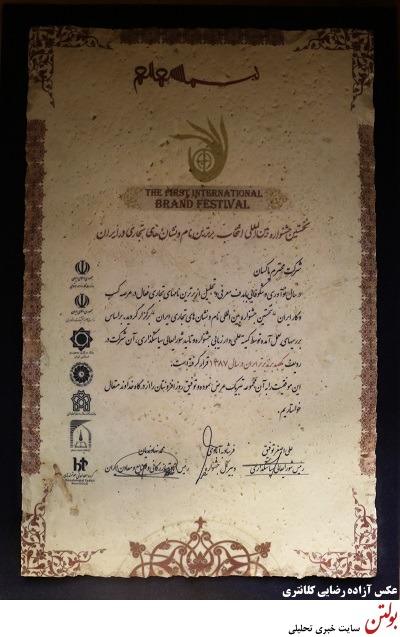 THE FIRST INTERNATIONAL
BRAND FESTIVAL
نخستین جشنواره بین‌المللی انتخاب برترین نام و نشان‌های تجاری در ایران
شرکت محترم پاکسان
در سال نوآوری و شکوفایی با هدف معرفی و تجلیل از برترین نامهای تجاری فعال در عرصه کسب
و کار ایران "نخستین جشنواره بین المللی نام و نشان های تجاری ایران" برگزار گردید. براساس
بررسیهای بعمل آمده توسط کمیته علمی و ارزیابی جشنواره و تایید شورایعالی سیاستگذاری، آن شرکت در
ردیف یکصد برند برتر ایران در سال ۱۳۸۷ قرار گرفته است.
این موفقیت را به آن مجموعه تبریک عرض نموده و توفیق روز افزونتان را از درگاه خداوند متعال
خواستاریم.
علی اصغر توفیق
رئیس شورایعالی سیاستگذاری
دبیر کل جشنواره
محمد نهاوندیان
رئیس اتاق بازرگانی و صنایع و معادن ایران
عکس آزاده رضایی کلانتری
بولتن سایت خبری تحلیلی